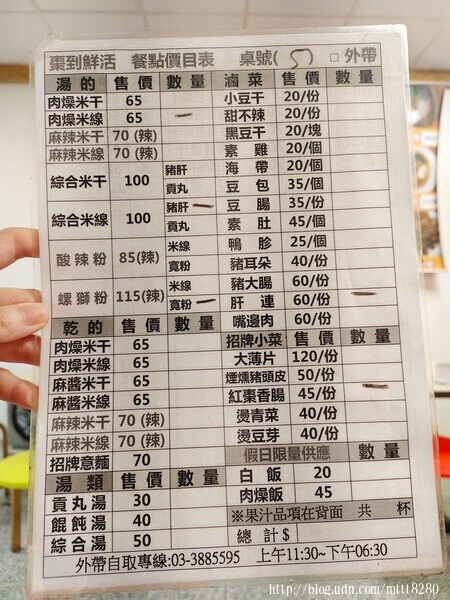 棗到鮮活 餐點價目表 桌號( 5 ) □外帶
湯的 售價 數量
肉燥米干 65
肉燥米線 65 一
麻辣米干 70 (辣)
麻辣米線 70 (辣)
綜合米干 100 豬肝
貢丸
綜合米線 100 豬肝 一
貢丸
酸辣粉 85(辣) 米線
寬粉
螺獅粉 115(辣) 米線
寬粉 一
乾的 售價 數量
肉燥米干 65
肉燥米線 65
麻醬米干 65
麻醬米線 65
麻辣米干 70 (辣)
麻辣米線 70 (辣)
招牌意麵 70
湯類 售價 數量
貢丸湯 30
餛飩湯 40
綜合湯 50
滷菜 售價 數量
小豆干 20/份
甜不辣 20/份
黑豆干 20/塊
素雞 20/個
海帶 20/個
豆包 35/個
豆腸 35/份
素肚 45/個
鴨胗 25/個
豬耳朵 40/份
豬大腸 60/份
肝連 60/份 一
嘴邊肉 60/份
招牌小菜 售價 數量
大薄片 120/份
煙燻豬頭皮 50/份
紅棗香腸 45/份 一
燙青菜 40/份
燙豆芽 40/份
假日限量供應 數量
白飯 20
肉燥飯 45
※果汁品項在背面 共 杯
總計$
外帶自取專線:03-3885595 上午11:30~下午06:30
http://blog.udn.com/mttt8280